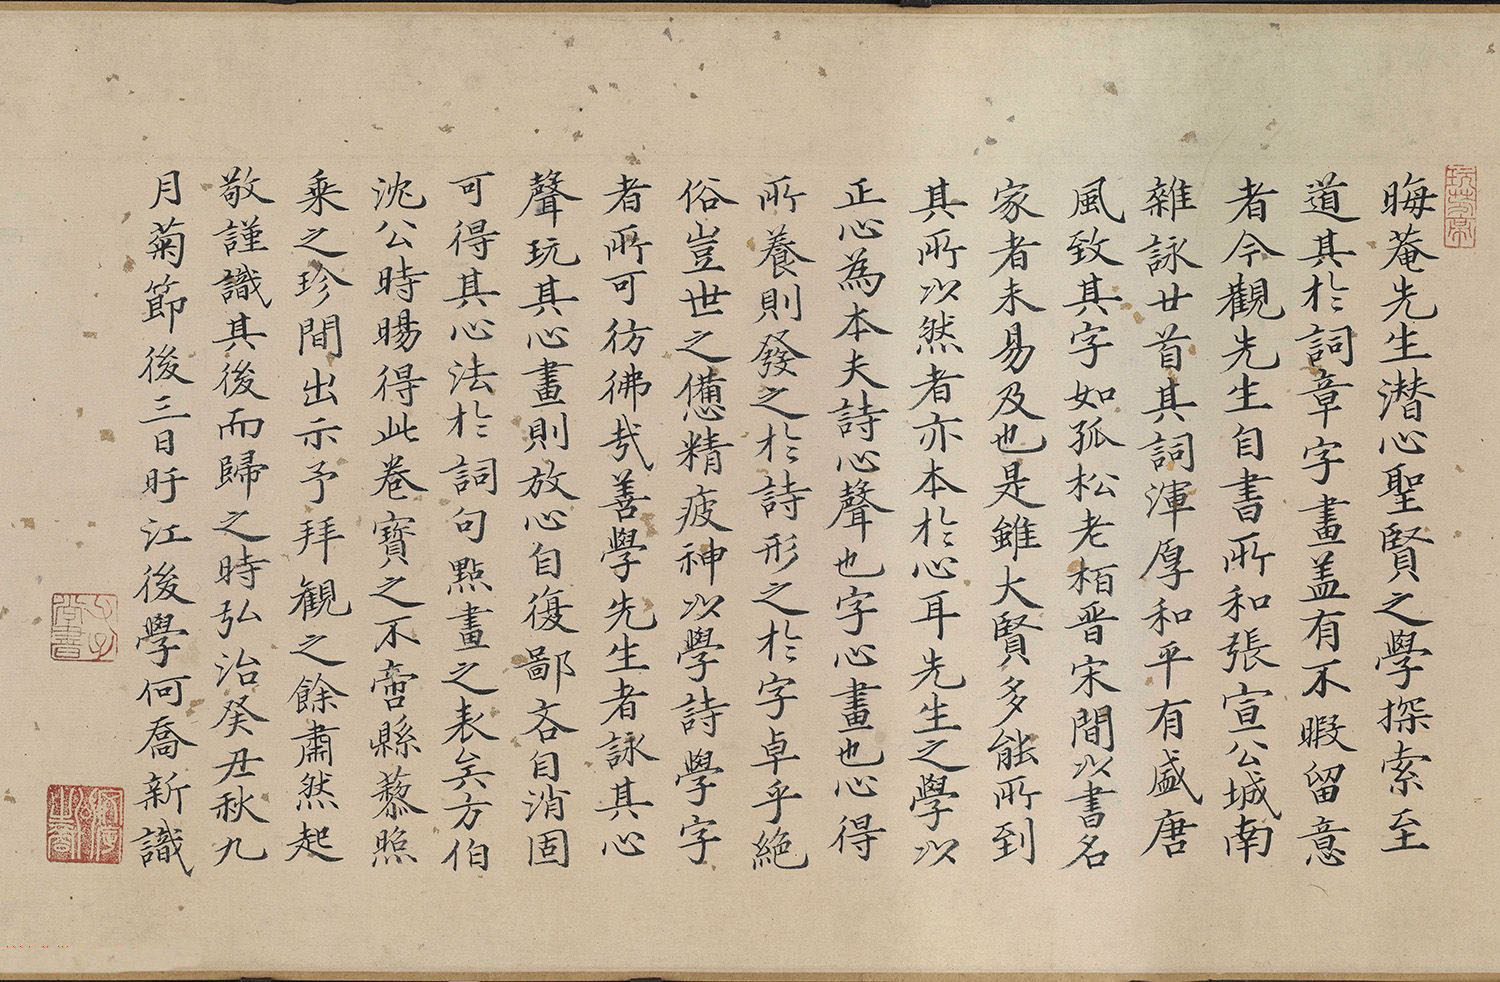 晦菴先生潛心聖賢之學探索至
道其於詞章字畫盖有不暇留意
者今觀先生自書所和張宣公城南
雜詠廿首其詞渾厚和平有盛唐
風致其字如孤松老栢晋宋間以書名
家者未易及也是雖大賢多能所到
其所以然者亦本於心耳先生之學以
正心為本夫詩心聲也字心畫也心得
所養則發之於詩形之於字卓乎絕
俗豈世之憊精疲神以學詩學字
者所可彷彿哉善學先生者詠其心
聲玩其心畫則放心自復鄙吝自消固
可得其心法於詞句點畫之表矣方伯
沈公時暘得此卷寶之不啻縣藜照
乘之珍間出示予拜觀之餘肅然起
敬謹識其後而歸之時弘治癸丑秋九
月菊節後三日盱江後學何喬新識